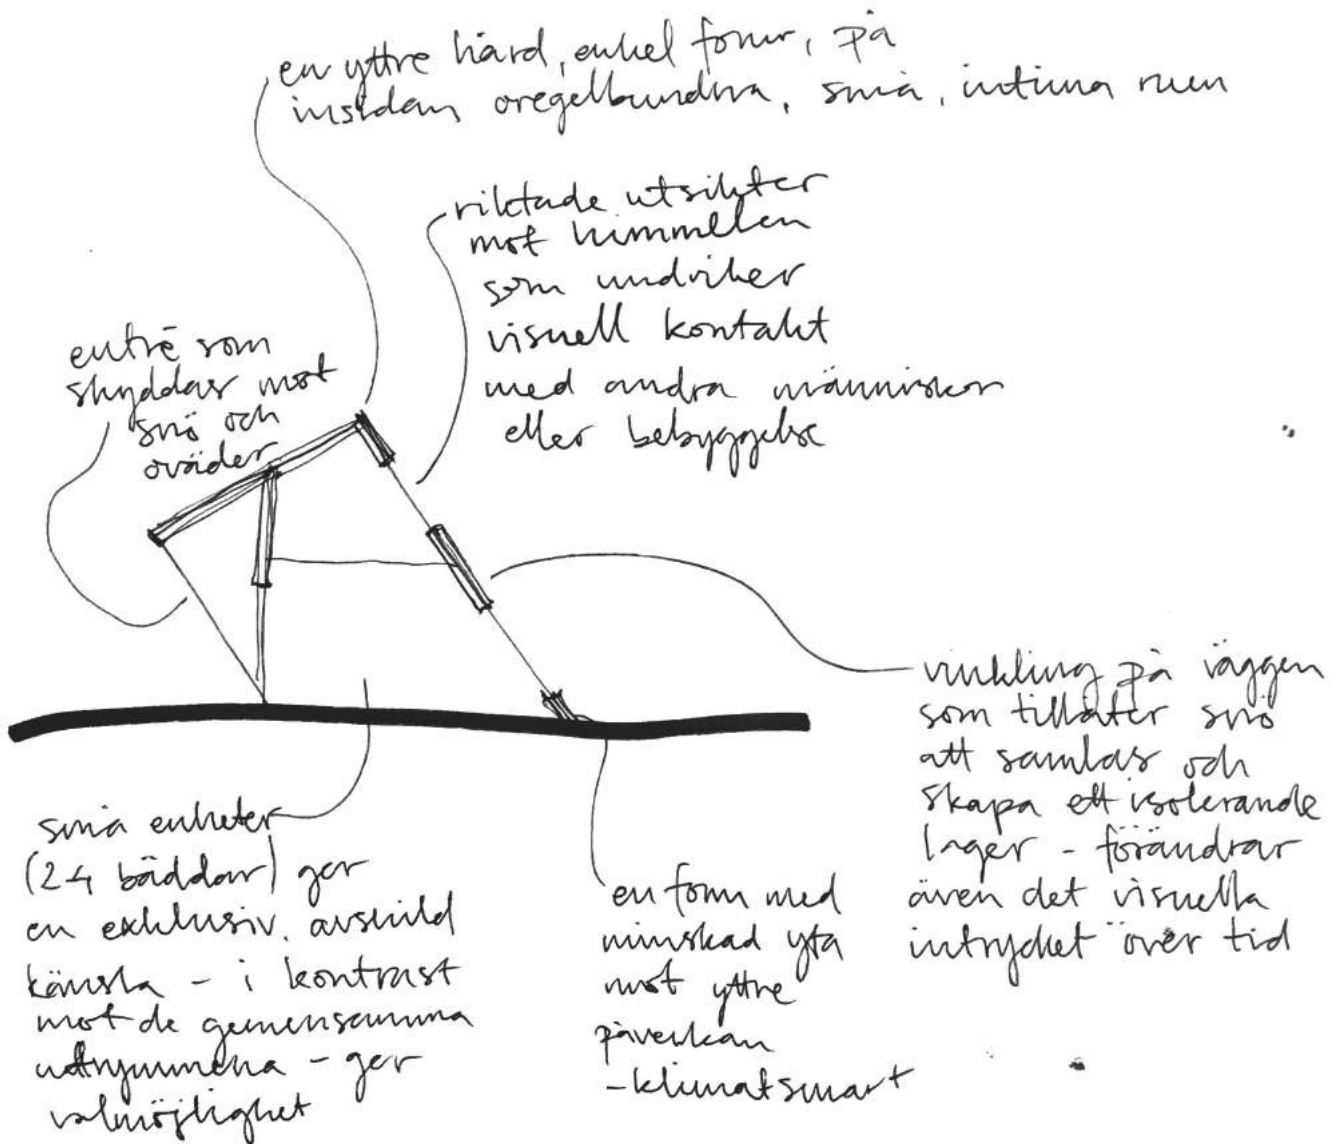 en yttre hård, enkel form, på
insidan oregelbundna, små, intima rum
riktade utsikter
mot himmelen
som undviker
visuell kontakt
med andra människor
eller bebyggelse
entré som
skyddas mot
snö och
oväder
vinkling på väggen
som tillåter snö
att samlas och
skapa ett isolerande
lager - förändrar
även det visuella
intrycket över tid
små enheter
(24 bäddar) ger
en exklusiv, avskild
känsla - i kontrast
mot de gemensamma
utrymmena - ger
valmöjlighet
en form med
minskad yta
mot yttre
påverkan
- klimatsmart